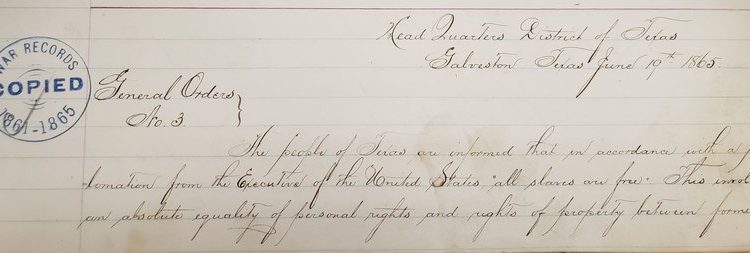 Head Quarters District of Texas
Galveston Texas June 19th 1865.
WAR RECORDS
COPIED
1861-1865
General Orders
No. 3.
The people of Texas are informed that in accordance with a
lamation from the Executive of the United States "all slaves are free". This
an absolute equality of personal rights and rights of property between